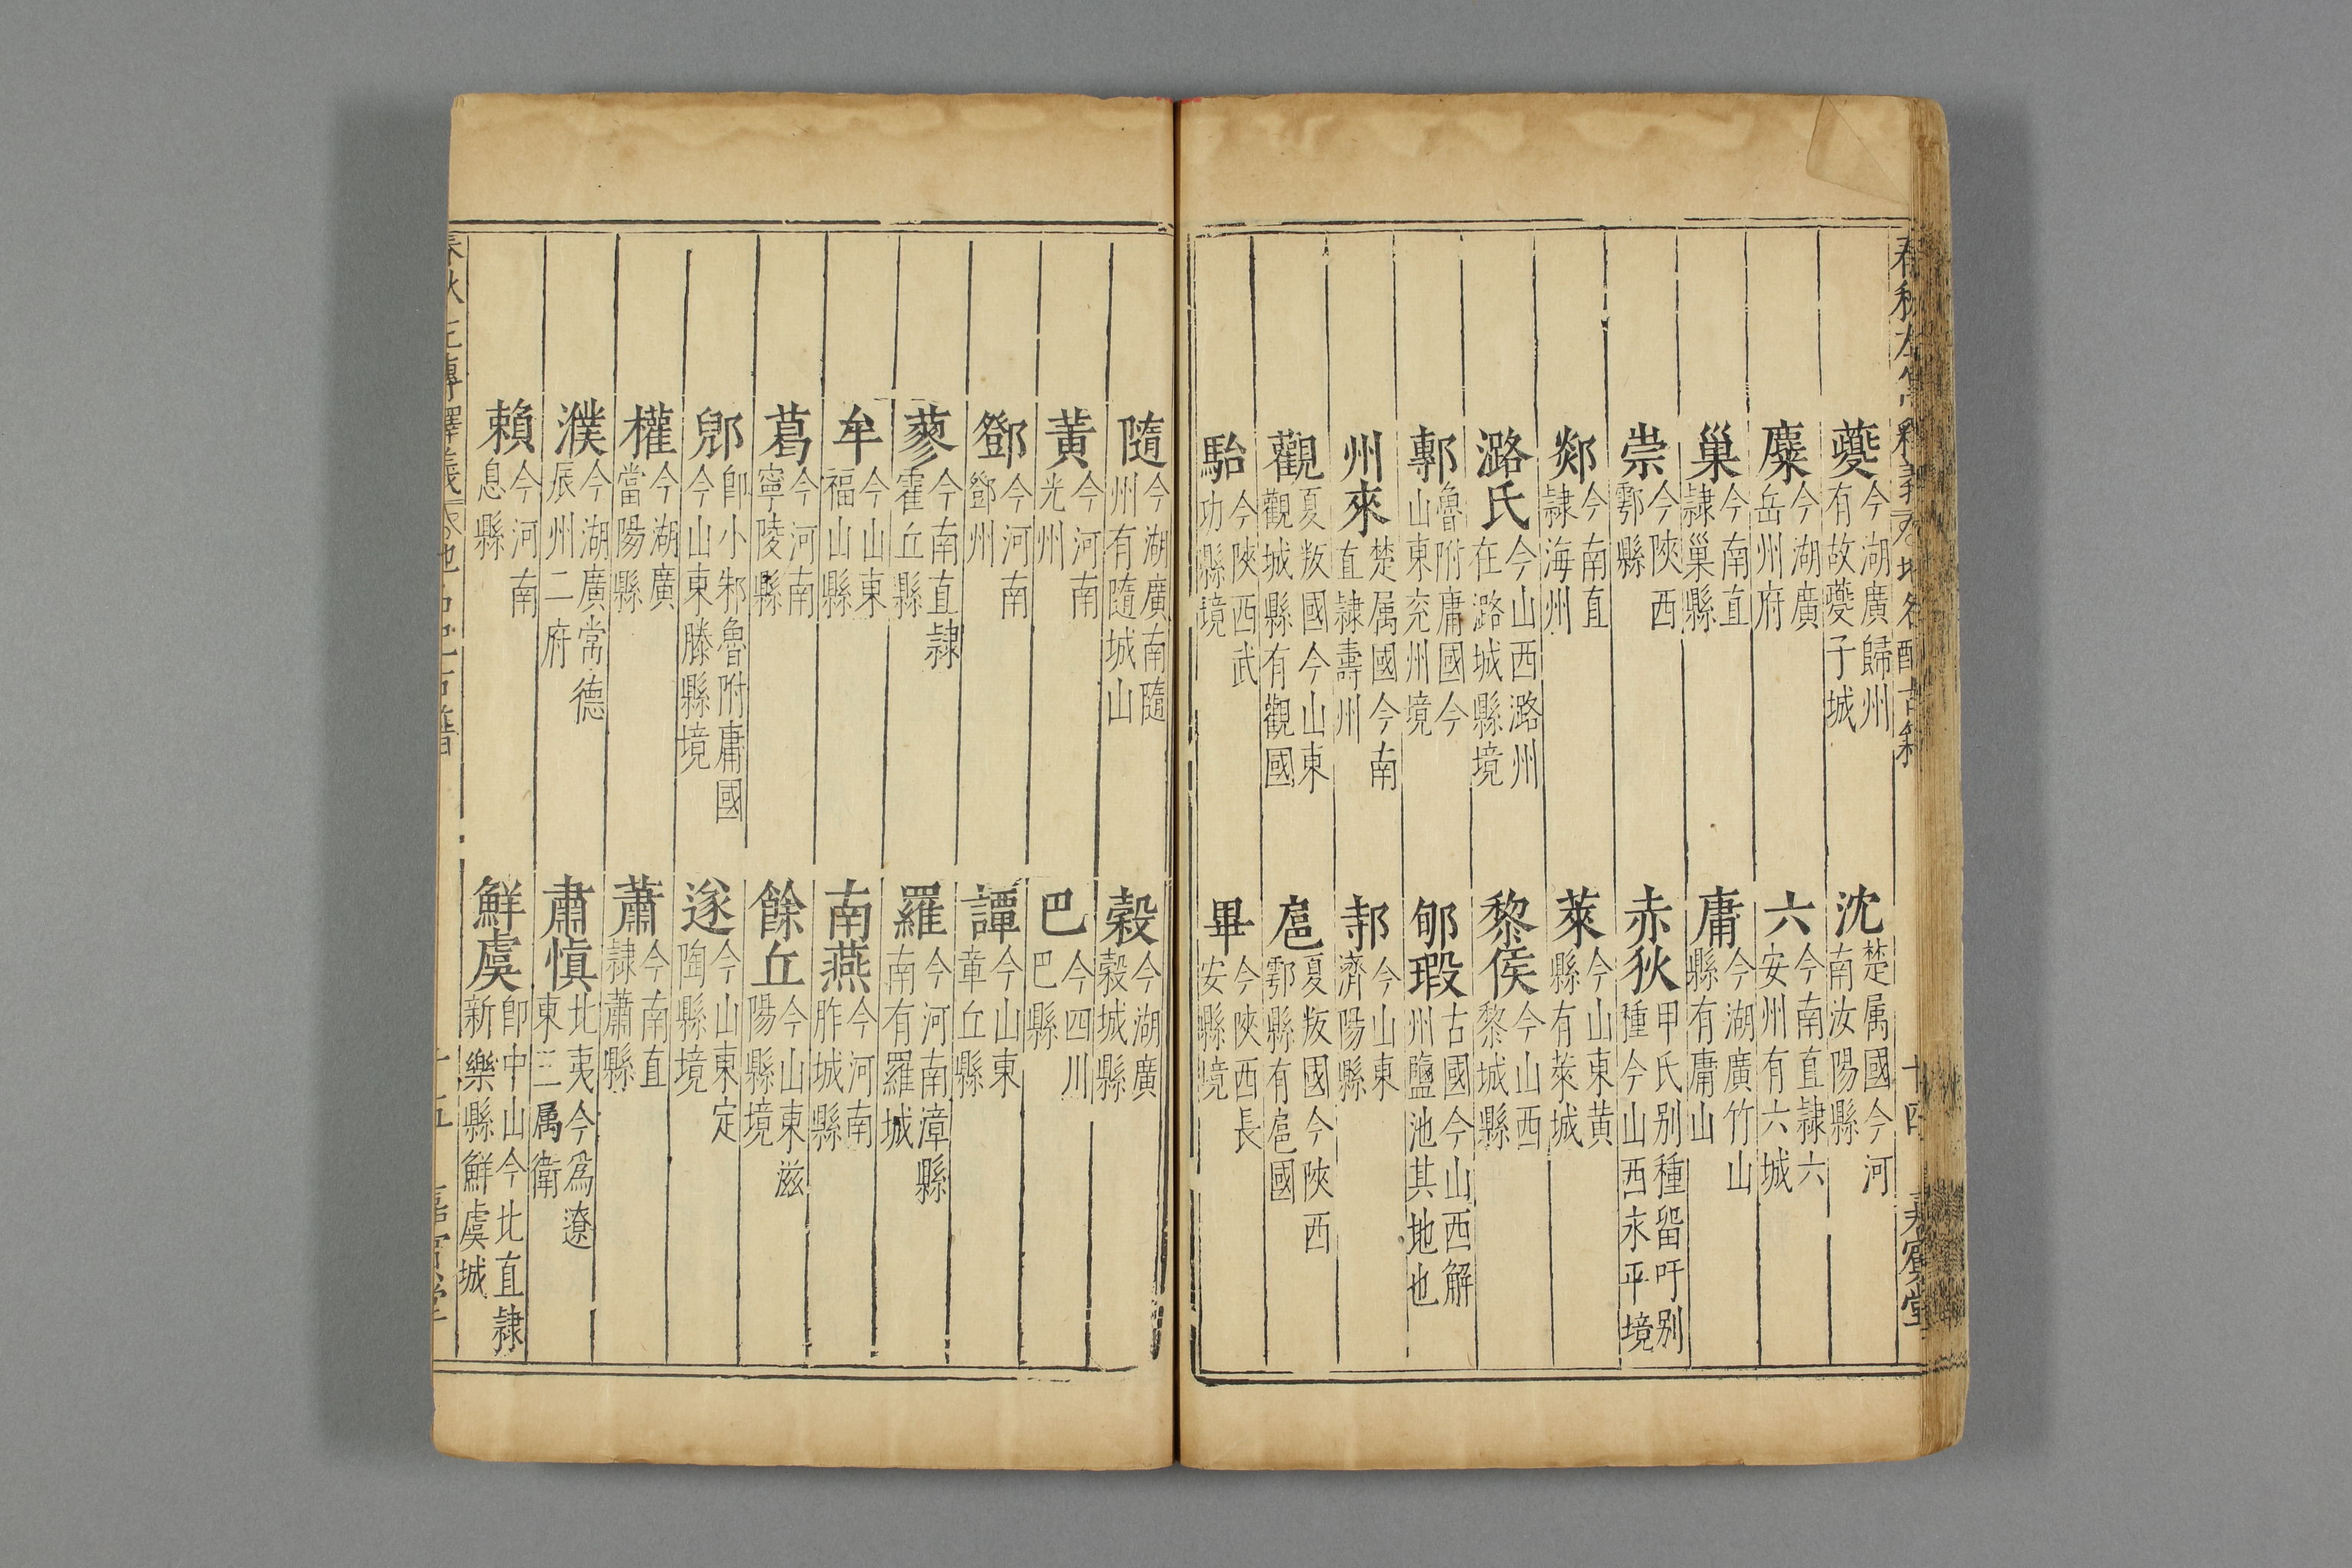 夔今湖廣歸州有故夔子城
沈楚属國今河南汝陽縣
麇今湖廣岳州府
六今南直隷六安州有六城
巢今南直隷巢縣
庸今湖廣竹山縣有庸山
崇今陝西鄠縣
赤狄甲氏别種畱吁别種今山西永平境
郯今南直隷海州
萊今山東黄縣有萊城
潞氏今山西潞州在潞城縣境
黎侯今山西黎城縣
鄟魯附庸國今山東兖州境
郇瑕古國今山西解州鹽池其地也
州來楚属國今南直隷壽州
邿今山東濟陽縣
觀夏叛國今山東觀城縣有觀國
扈夏叛國今陝西鄠縣有扈國
駘今陝西武功縣境
畢今陝西長安縣境
十四
隨今湖廣南隨州有隨城山
穀今湖廣穀城縣
黃今河南光州
巴今四川巴縣
鄧今河南鄧州
譚今山東章丘縣
蓼今南直隷霍丘縣
羅今河南漳縣南有羅城
牟今山東福山縣
南燕今河南胙城縣
葛今河南寧陵縣
餘丘今山東滋陽縣境
郳卽小邾魯附庸國今山東滕縣境
遂今山東定陶縣境
權今湖廣當陽縣
蕭今南直隷蕭縣
濮今湖廣常德辰州二府
肅愼北夷今爲遼東三属衛
賴今河南息縣
鮮虞卽中山今北直隷新樂縣鮮虞城